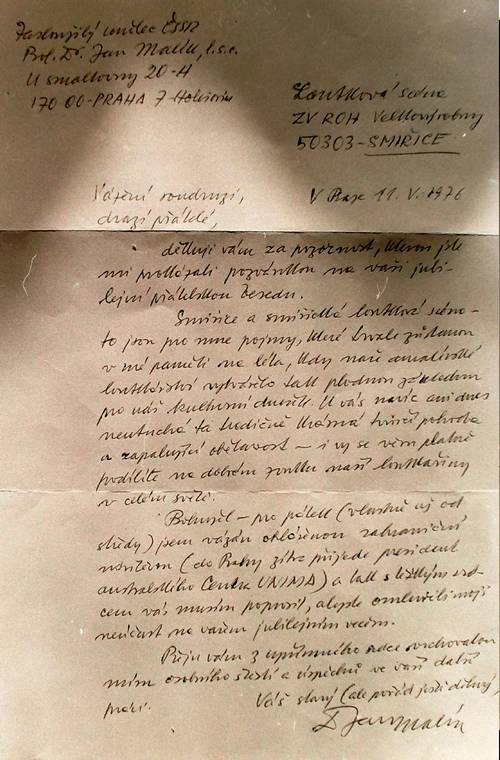 Zasloužilý umělec ČSSR
Prof. Dr. Jan Malík, l.s.c.
U smaltovny 20-H
170 00-PRAHA 7-Holešovice
Loutková scéna
ZV ROH Velkovýkrmny
50303-SMIŘICE
V Praze 11. V. 1976
Vážení soudruzi,
drazí přátelé,
děkuji vám za pozornost, kterou jste
mi prokázali pozvánkou na vaši jubi-
lejní přátelskou besedu.
Smiřice a smiřická loutková scéna -
to jsou pro mne pojmy, které trvale zůstanou
v mé paměti na léta, kdy naše amatérské
loutkářství vytvářelo tak plodnou základnu
pro náš kulturní dnešek. U vás navíc ani dnes
neutuchá ta tradičně krásná tvůrčí pohoda
a zapalující obětavost - i vy se všem platně
podílíte na dobrém zvuku naší loutkařiny
v celém světě.
Bohužel - pro pátek (vlastně už od
středy) jsem vázán ohlášenou zahraniční
návštěvou (do Prahy zítra přijede president
australského Centra UNIMA) a tak s těžkým srd-
cem vás musím poprosit, abyste omluvili moji
neúčast na vašem jubilejním večeru.
Přeju vám z upřímného srdce vrchovatou
míru osobního štěstí a úspěchů ve vaší další
práci.
Váš starý (ale pořád ještě dětinný)
Dr Jan Malík